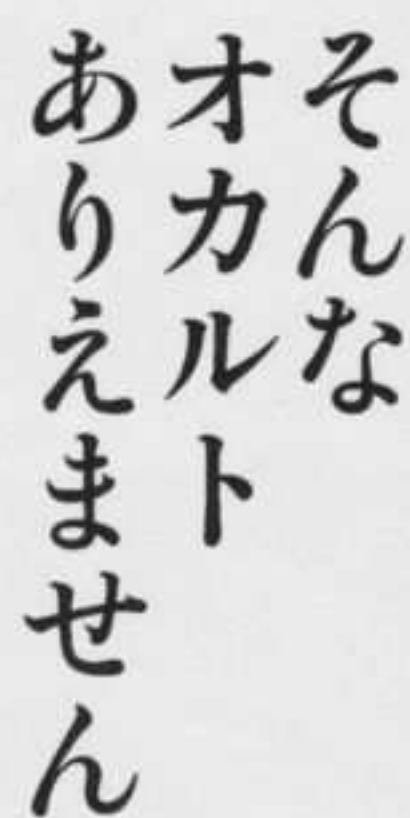 そんな
オカルト
ありえません